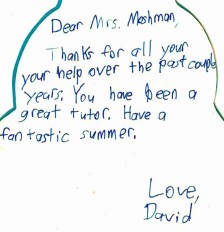 Dear Mrs. Mashman,
Thanks for all your
your help over the past couple
years. You have been a
great tutor. Have a
fantastic summer.
Love,
David